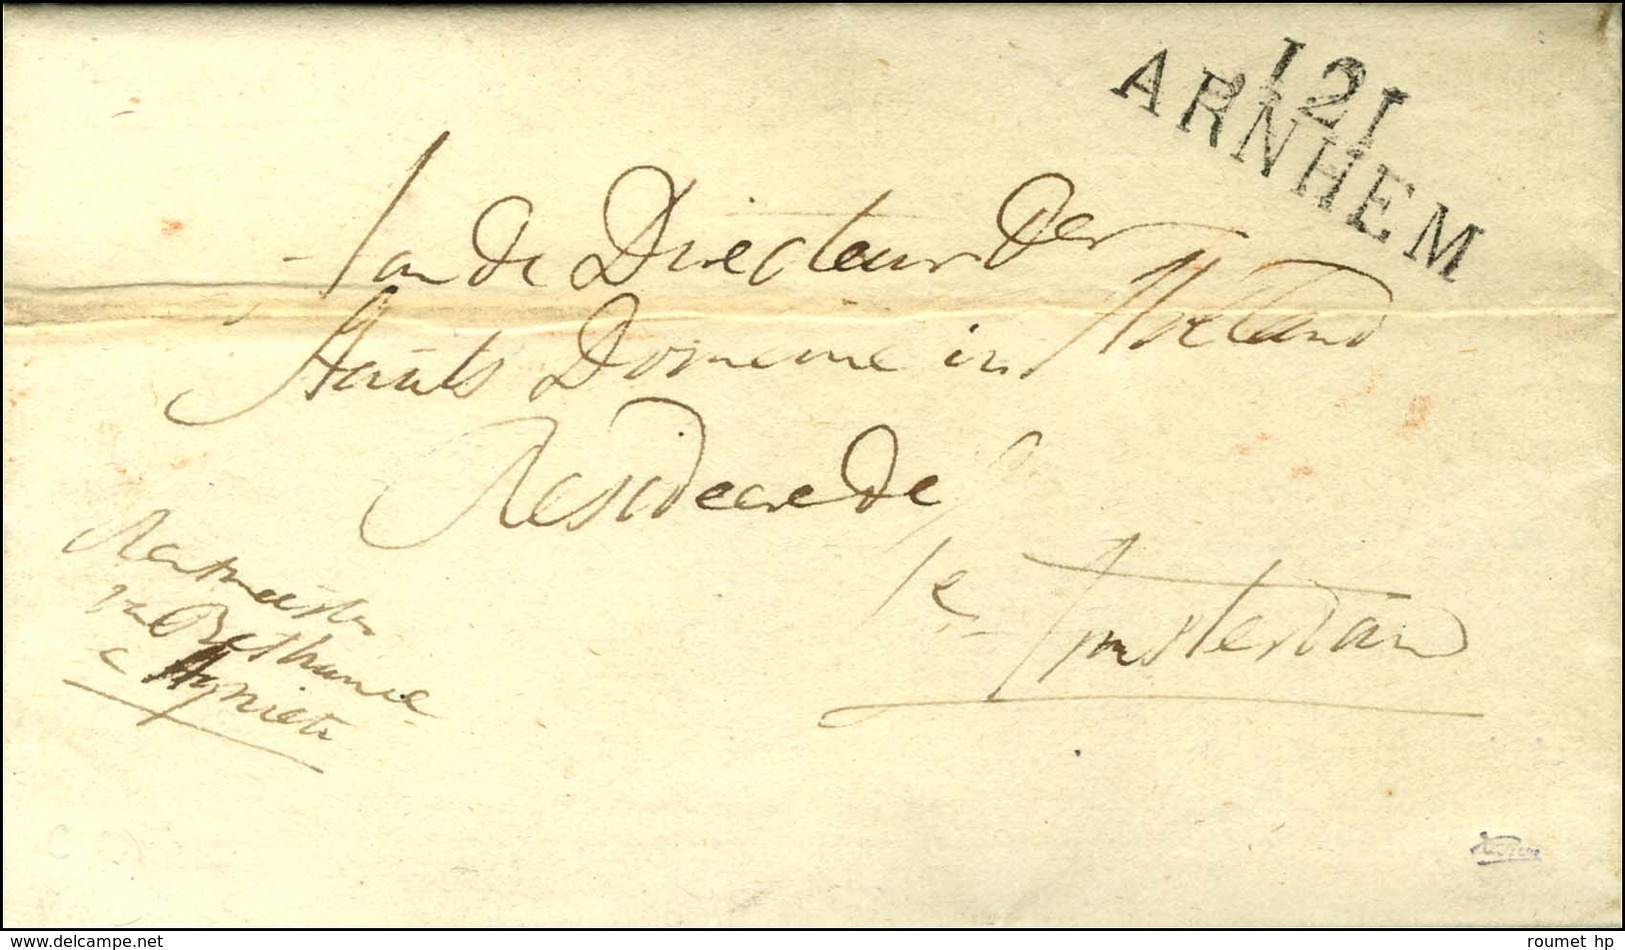 121
ARNHEM
Aan de Directeur der
Staats Domeine in Holland
Resideerende
te Amsterdam
Rentmeester
van
www.delcampe.net
roumet hp